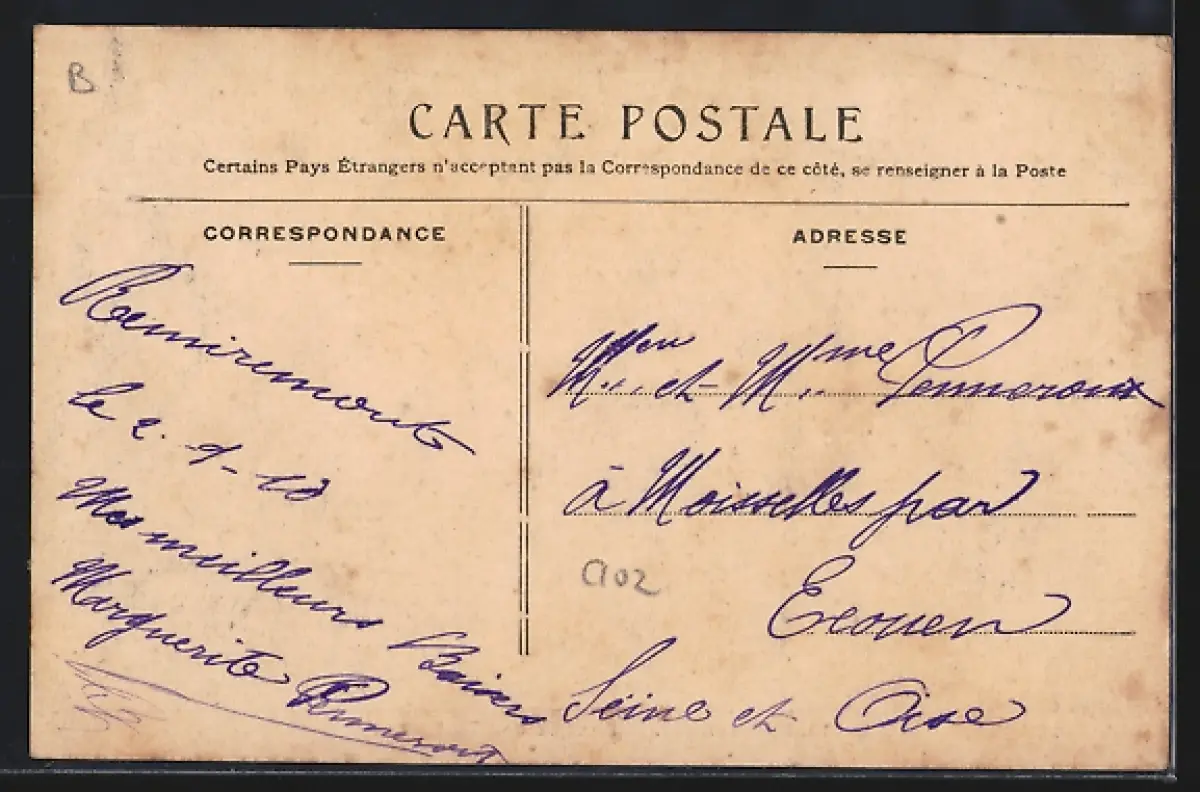 B
CARTE POSTALE
Certains Pays Étrangers n'acceptent pas la Correspondance de ce côté, se renseigner à la Poste
CORRESPONDANCE
Remiremont
le 2 - 1 - 10
Mes meilleurs Baisers
Marguerite
ADRESSE
et Mme
à Moisselles par
Ecouen
Seine et Oise